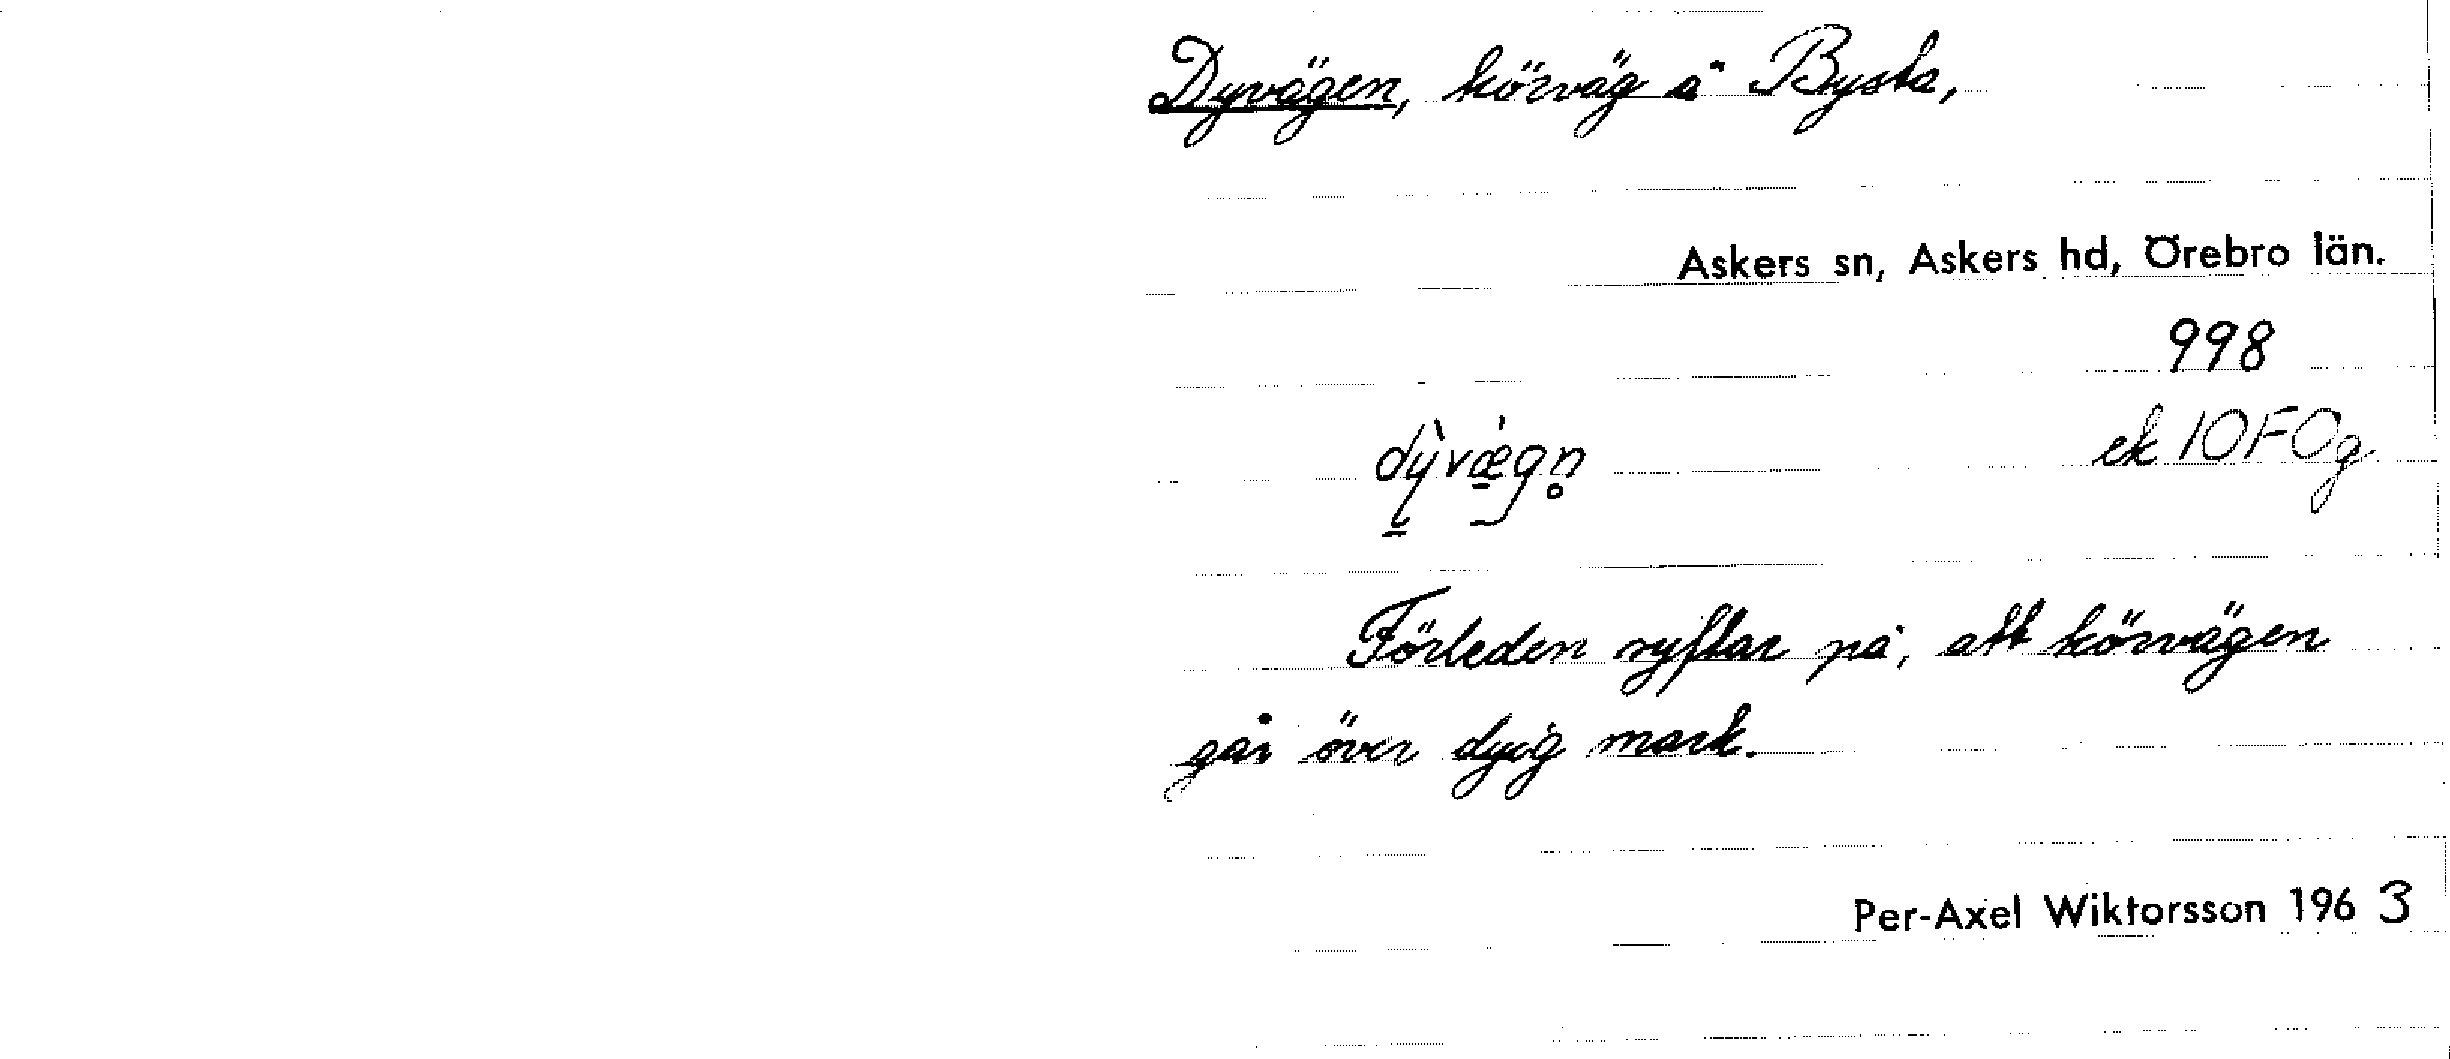 Dyvägen, körväg å Bysta,
Askers sn, Askers hd, Örebro län.
998
dỳ̠væ̠̀gn̥
ek 10F0g
Förleden syftar på, att körvägen
går över dyig mark.
Per-Axel Wiktorsson 1963